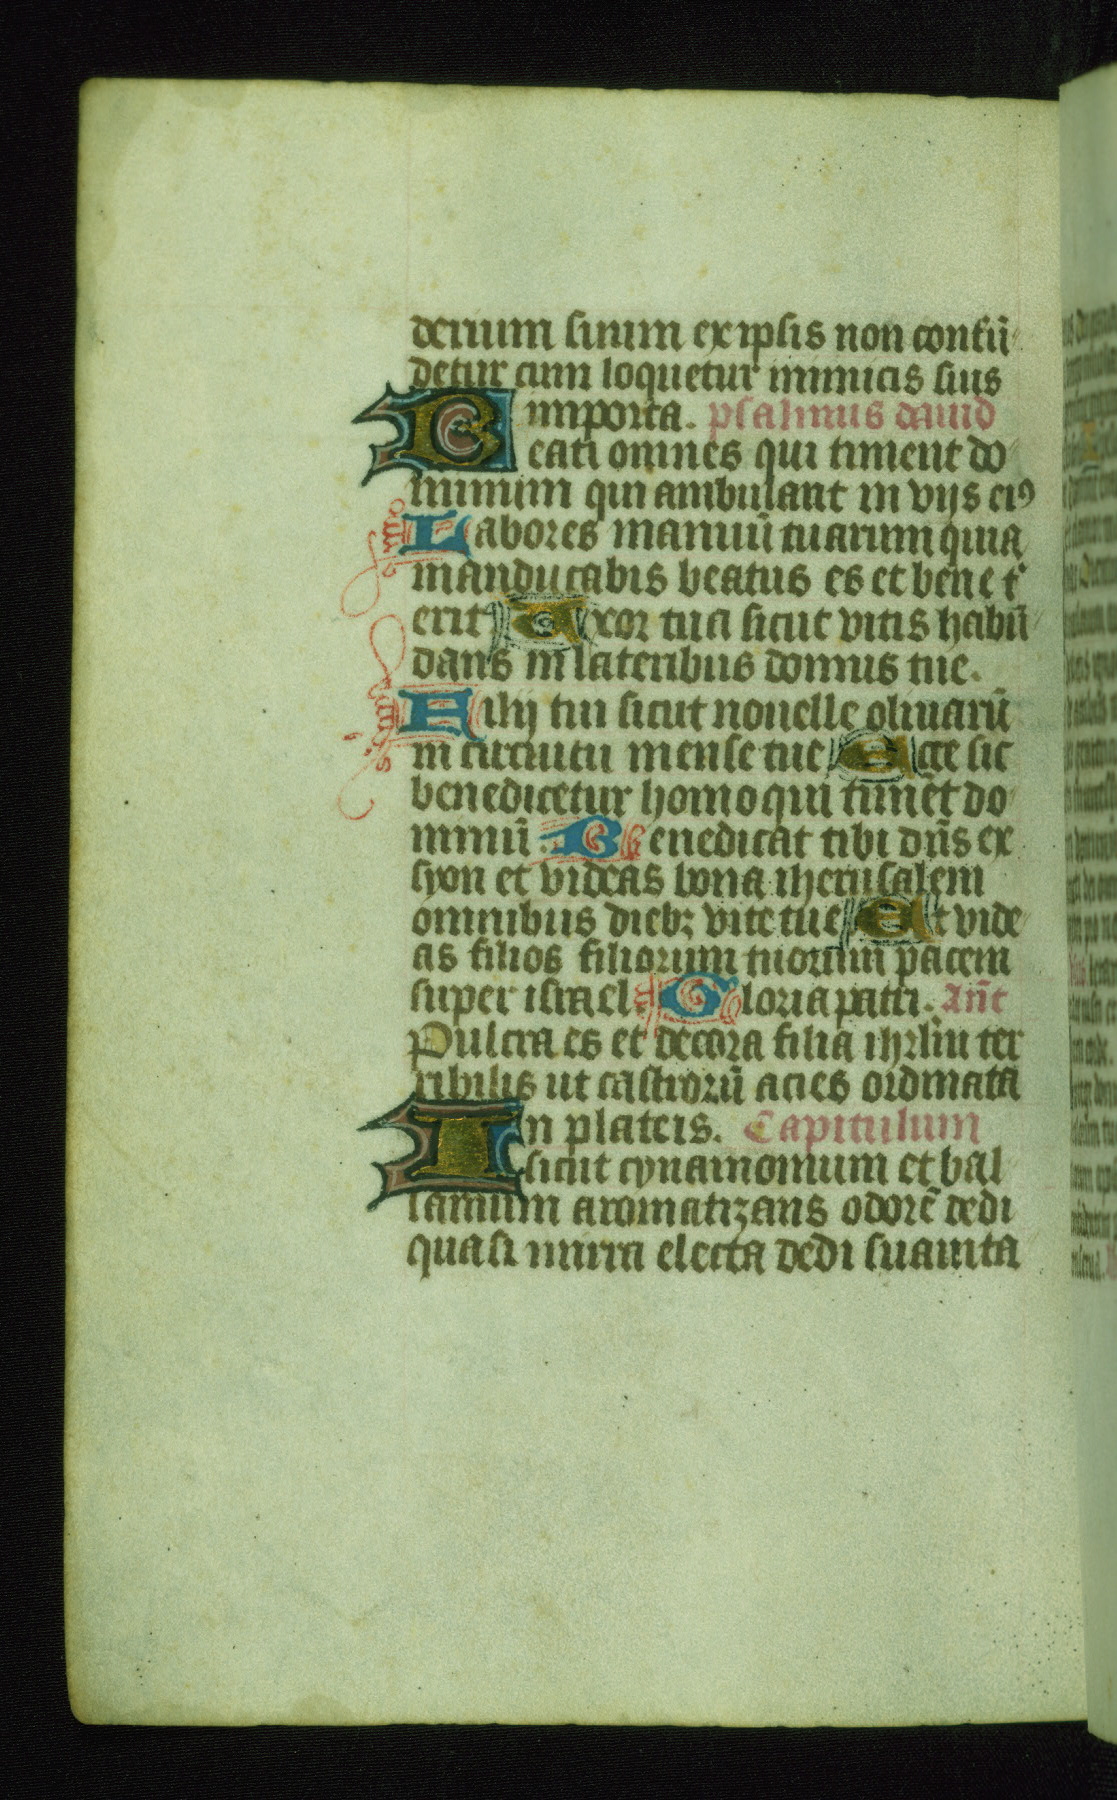 derium suum ex ipsis non confū
detur cum loquetur inimicis suis
in porta. psalmus dauid
Beati omnes qui timent do
minum qui ambulant in vijs eiꝰ
Labores manuū tuarum quia
manducabis beatus es et bene t
erit Uxor tua sicut vitis habū
dans in lateribus domus tue.
Filij tui sicut nouelle oliuarū
in circuitu mense tue Ecce sic
benedicetur homo qui timēt do
minū Benedicat tibi dn̄s ex
syon et videas bona iherusalem
omnibus diebꝫ vite tue Et vide
as filios filiorum tuorum pacem
super israel. Gloria patri. Ant̄
Pulcra es et decora filia ihrlm̄ ter
ribilis ut castrorū acies ordinata
In plateis. Capitulum
sicut cynamomum et bal
samum aromatizans odorē dedi
quasi mirra electa dedi suauita